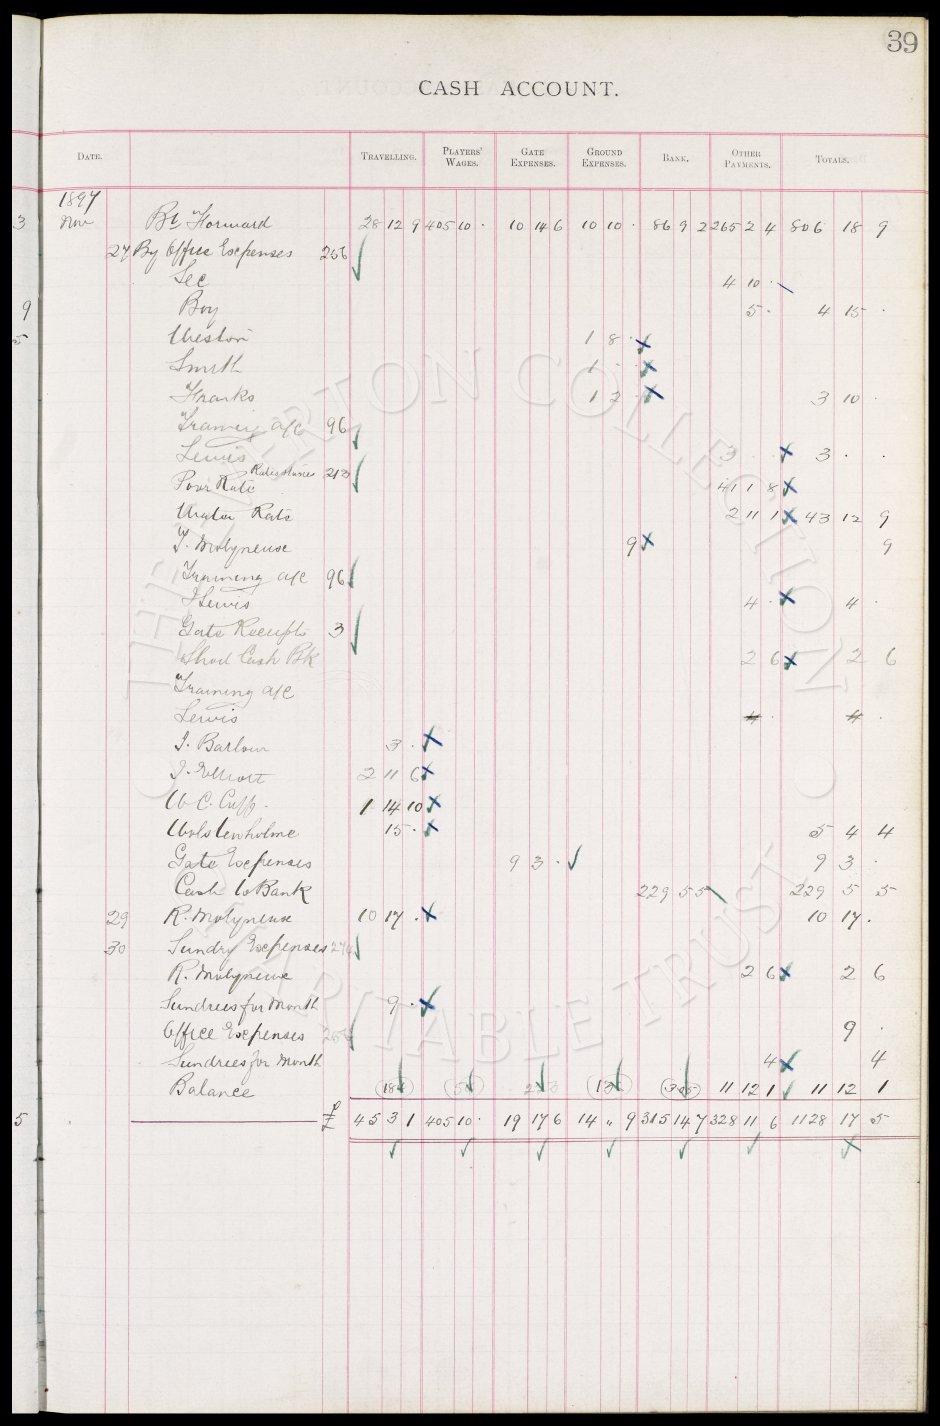 39
CASH ACCOUNT.
DATE. TRAVELLING. PLAYERS' WAGES. GATE EXPENSES. GROUND EXPENSES. BANK. OTHER PAYMENTS. TOTALS.
1897
3 Nov Bt Forward 28 12 9 405 10 · 10 14 6 10 10 · 86 9 2 265 2 4 806 18 9
27 By Office Expenses 256
Sec 4 10 ·
9 Boy 5 · 4 15 ·
5 Weston 1 8 ·
Smith 1 · ·
Franks 1 2 · 3 10 ·
Training a/c 96
Lewis 3 · · 3 · ·
Rates & taxes 213
Poor Rate 41 1 8
Water Rate 2 11 1 43 12 9
T. Molyneux 9 9
Training a/c 96
J Lewis 4 · 4 ·
Gate Receipts 3
Short Cash Bk 2 6 2 6
Training a/c
Lewis 4 · 4 ·
J. Barbour 3 ·
J. Elliott 2 11 6
W. C. Cuff 1 14 10
Wolstenholme 15 · 5 4 4
Gate Expenses 9 3 · 9 3 ·
Cash to Bank 229 5 5 229 5 5
29 R. Molyneux 10 17 · 10 17 ·
30 Sundry Expenses 274
R. Molyneux 2 6 2 6
Sundries for Month 9 ·
Office Expenses 256 9
Sundries for Month 4 4
Balance 11 12 1 11 12 1
5 £ 45 3 1 405 10 · 19 17 6 14 „ 9 315 14 7 328 11 6 1128 17 5
THE EVERTON COLLECTION CHARITABLE TRUST